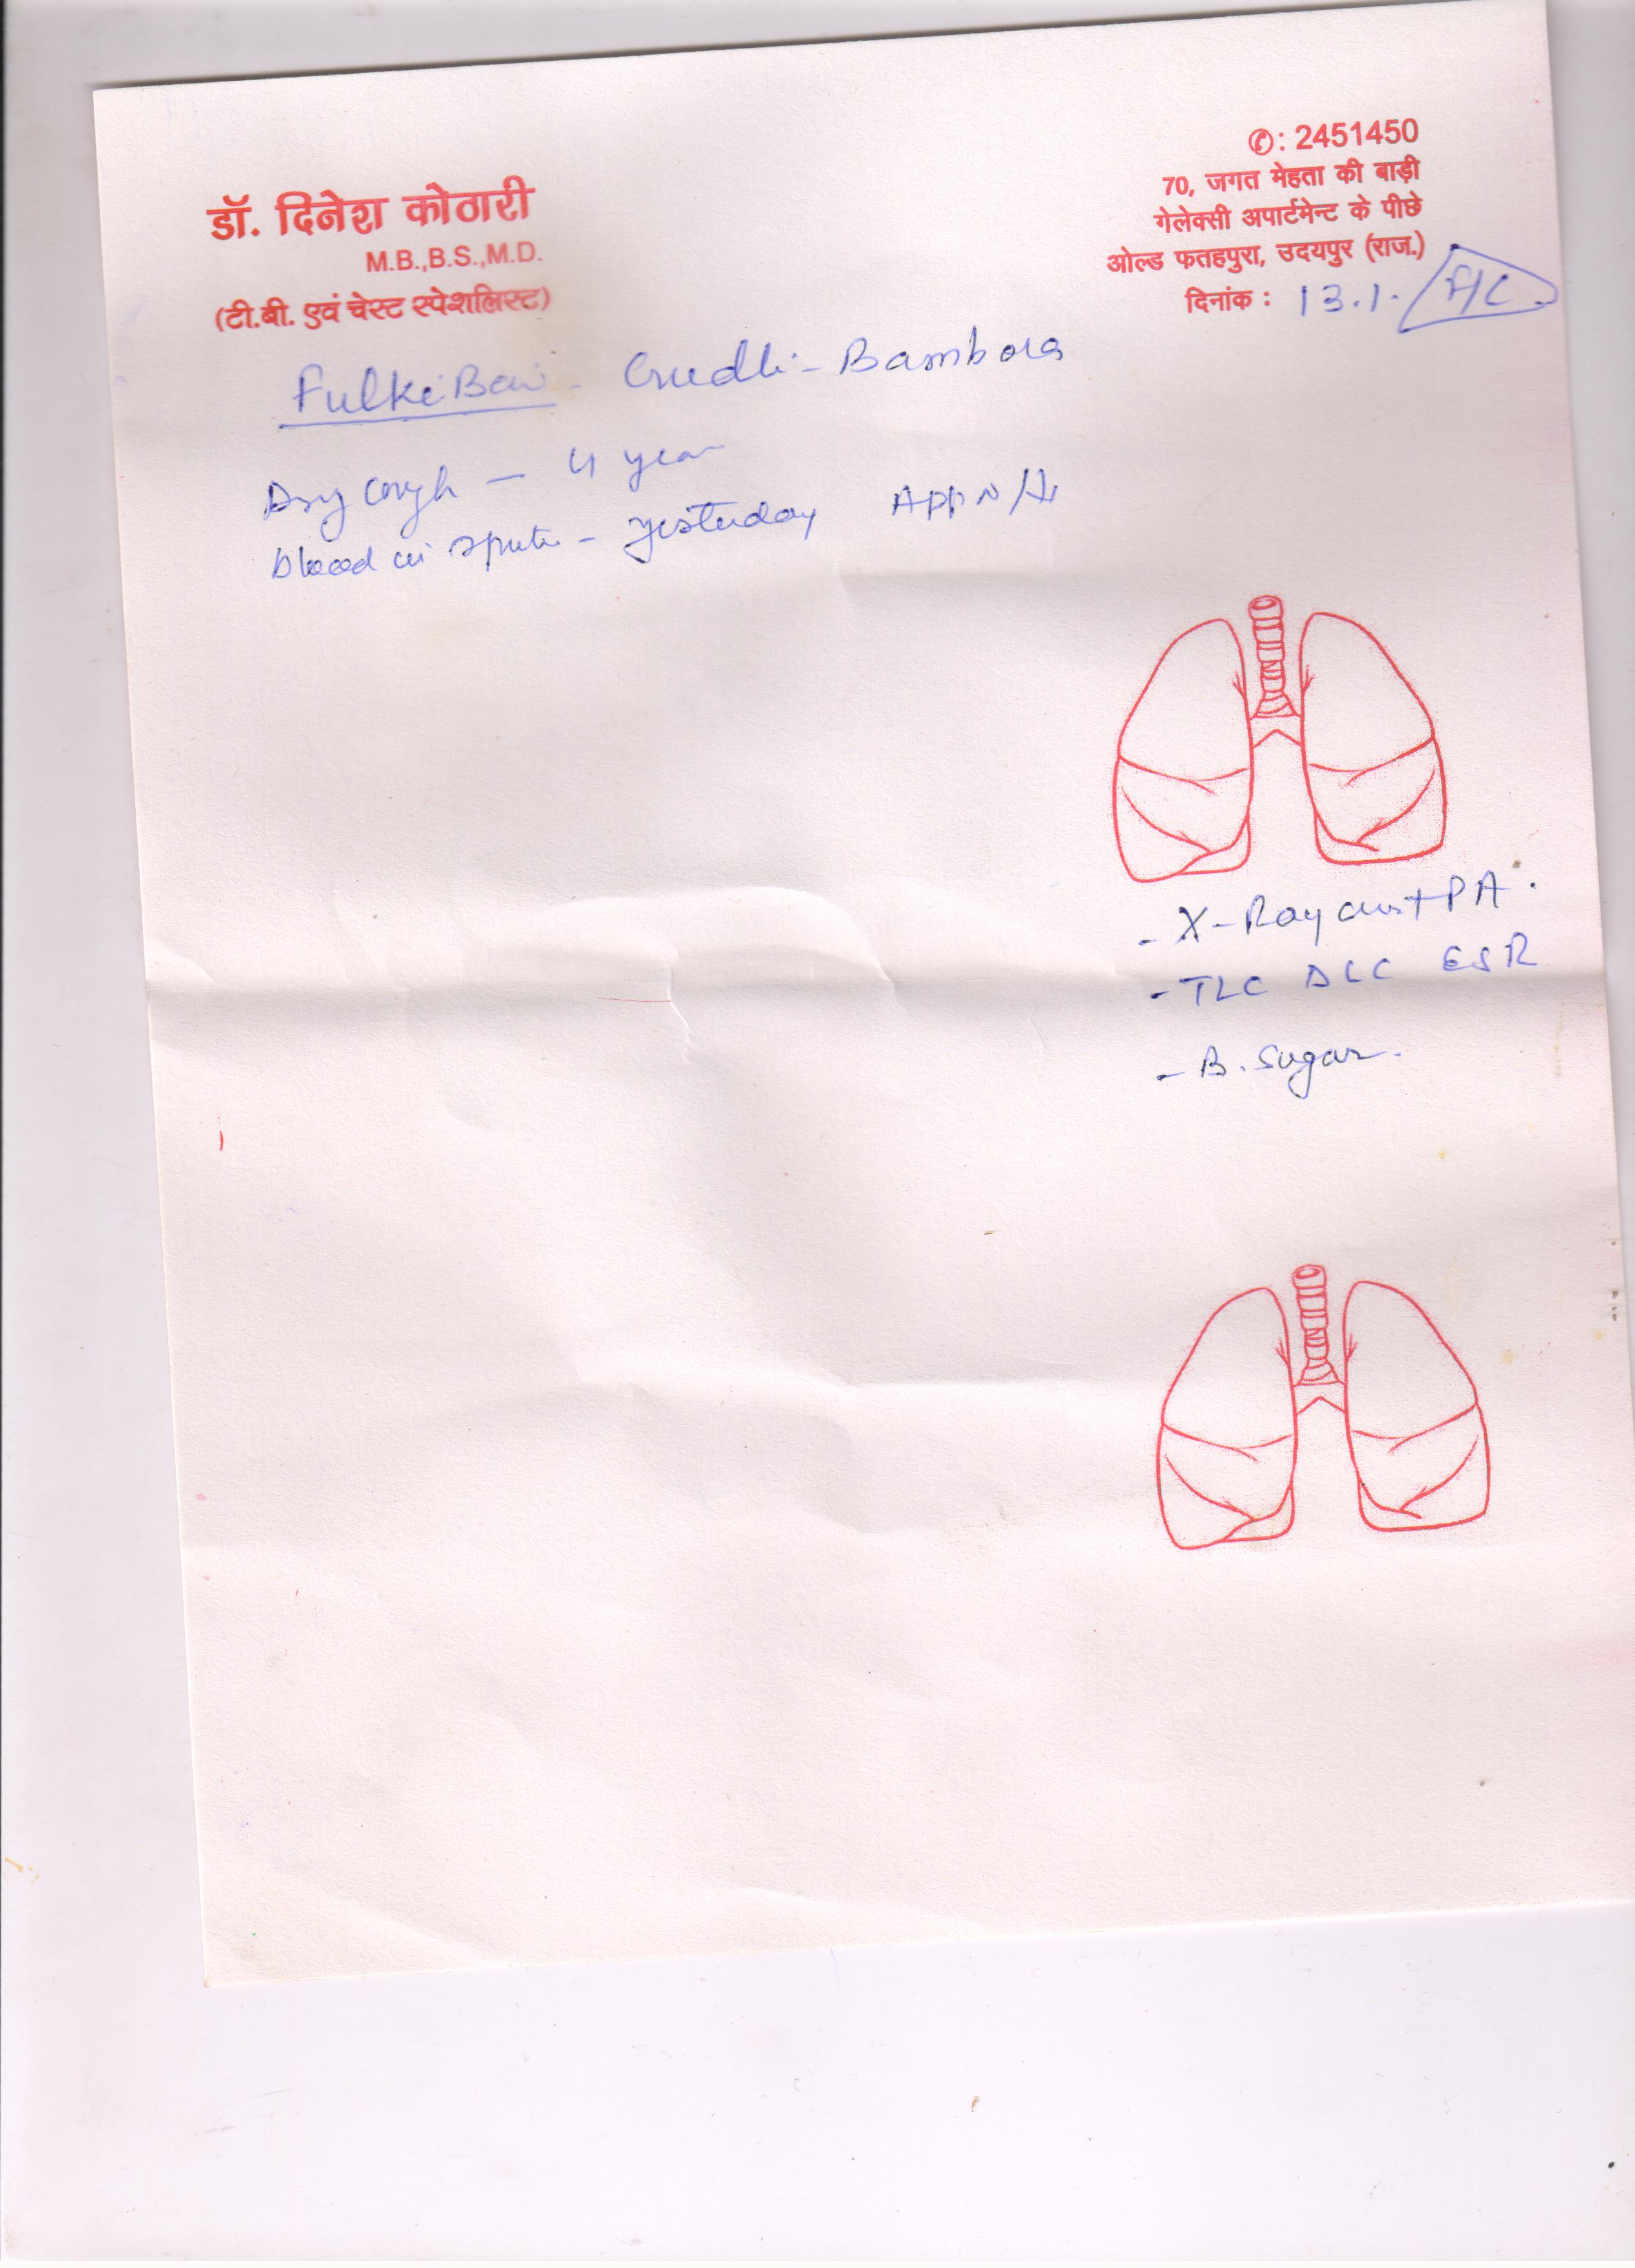 ✆: 2451450
डॉ. दिनेश कोठारी
M.B.,B.S.,M.D.
(टी.बी. एवं चेस्ट स्पेशलिस्ट)
70, जगत मेहता की बाड़ी
गेलेक्सी अपार्टमेन्ट के पीछे
ओल्ड फतहपुरा, उदयपुर (राज.)
दिनांक : 13.1. F/C
Fulki Bai - - Bambora
Dry cough — 4 year
blood in - yesterday App N
- X-Ray chest PA.
- TLC DLC ESR
- B. Sugar.